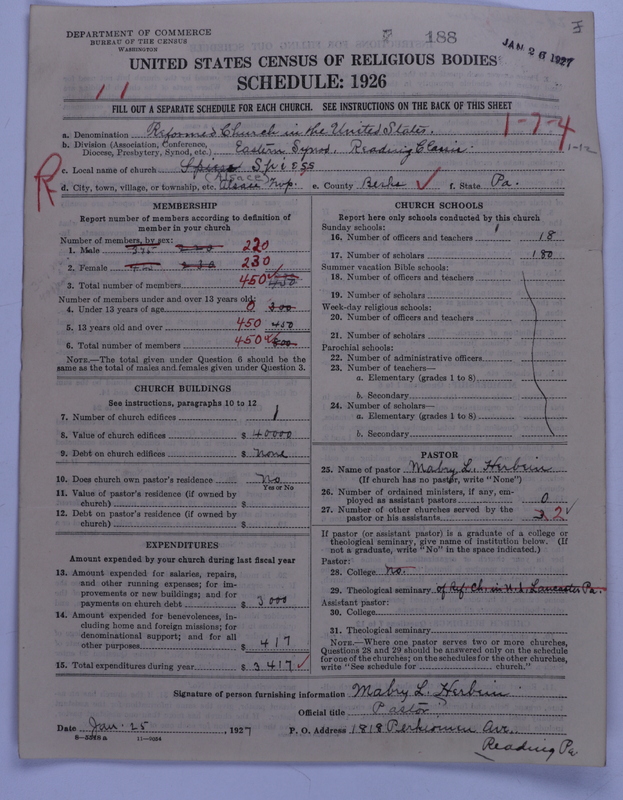 DEPARTMENT OF COMMERCE
BUREAU OF THE CENSUS
WASHINGTON
188
JAN 26 1927
UNITED STATES CENSUS OF RELIGIOUS BODIES
SCHEDULE: 1926
1 1
FILL OUT A SEPARATE SCHEDULE FOR EACH CHURCH. SEE INSTRUCTIONS ON THE BACK OF THIS SHEET
a. Denomination Reformed Church in the United States. 1-7-4
b. Division (Association, Conference, Diocese, Presbytery, Synod, etc.) Eastern Synod. Reading Classis. 1-12
R
c. Local name of church Spiess
(Alsace)
d. City, town, village, or township, etc. Alsace Twp. e. County Berks ✓ f. State Pa.
MEMBERSHIP
Report number of members according to definition of member in your church
Number of members, by sex:
1. Male 220
2. Female 230
3. Total number of members 450 ✓ 450
Number of members under and over 13 years old:
4. Under 13 years of age 0 300
5. 13 years old and over 450 450
6. Total number of members 450 ✓
NOTE.—The total given under Question 6 should be the same as the total of males and females given under Question 3.
CHURCH BUILDINGS
See instructions, paragraphs 10 to 12
7. Number of church edifices 1
8. Value of church edifices $ 40000
9. Debt on church edifices $ None
10. Does church own pastor's residence No
Yes or No
11. Value of pastor's residence (if owned by church) $
12. Debt on pastor's residence (if owned by church) $
EXPENDITURES
Amount expended by your church during last fiscal year
13. Amount expended for salaries, repairs, and other running expenses; for improvements or new buildings; and for payments on church debt $ 3000
14. Amount expended for benevolences, including home and foreign missions; for denominational support; and for all other purposes $ 417
15. Total expenditures during year $ 3417 ✓
CHURCH SCHOOLS
Report here only schools conducted by this church
Sunday schools:
16. Number of officers and teachers 18
17. Number of scholars 180
Summer vacation Bible schools:
18. Number of officers and teachers
19. Number of scholars
Week-day religious schools:
20. Number of officers and teachers
21. Number of scholars
Parochial schools:
22. Number of administrative officers
23. Number of teachers—
a. Elementary (grades 1 to 8)
b. Secondary
24. Number of scholars—
a. Elementary (grades 1 to 8)
b. Secondary
PASTOR
25. Name of pastor Mabry L. Herbein
(If church has no pastor, write "None")
26. Number of ordained ministers, if any, employed as assistant pastors 0
27. Number of other churches served by the pastor or his assistants 2 ✓
If pastor (or assistant pastor) is a graduate of a college or theological seminary, give name of institution below. (If not a graduate, write "No" in the space indicated.)
Pastor:
28. College No.
29. Theological seminary of Ref. Ch. in U.S. Lancaster Pa.
Assistant pastor:
30. College
31. Theological seminary
NOTE.—Where one pastor serves two or more churches, Questions 28 and 29 should be answered only on the schedule for one of the churches; on the schedules for the other churches, write "See schedule for church."
Signature of person furnishing information Mabry L. Herbein
Official title Pastor
Date Jan. 25, 1927 P. O. Address 1818 Perkiomen Ave.
8-5348a 11-9034 Reading Pa